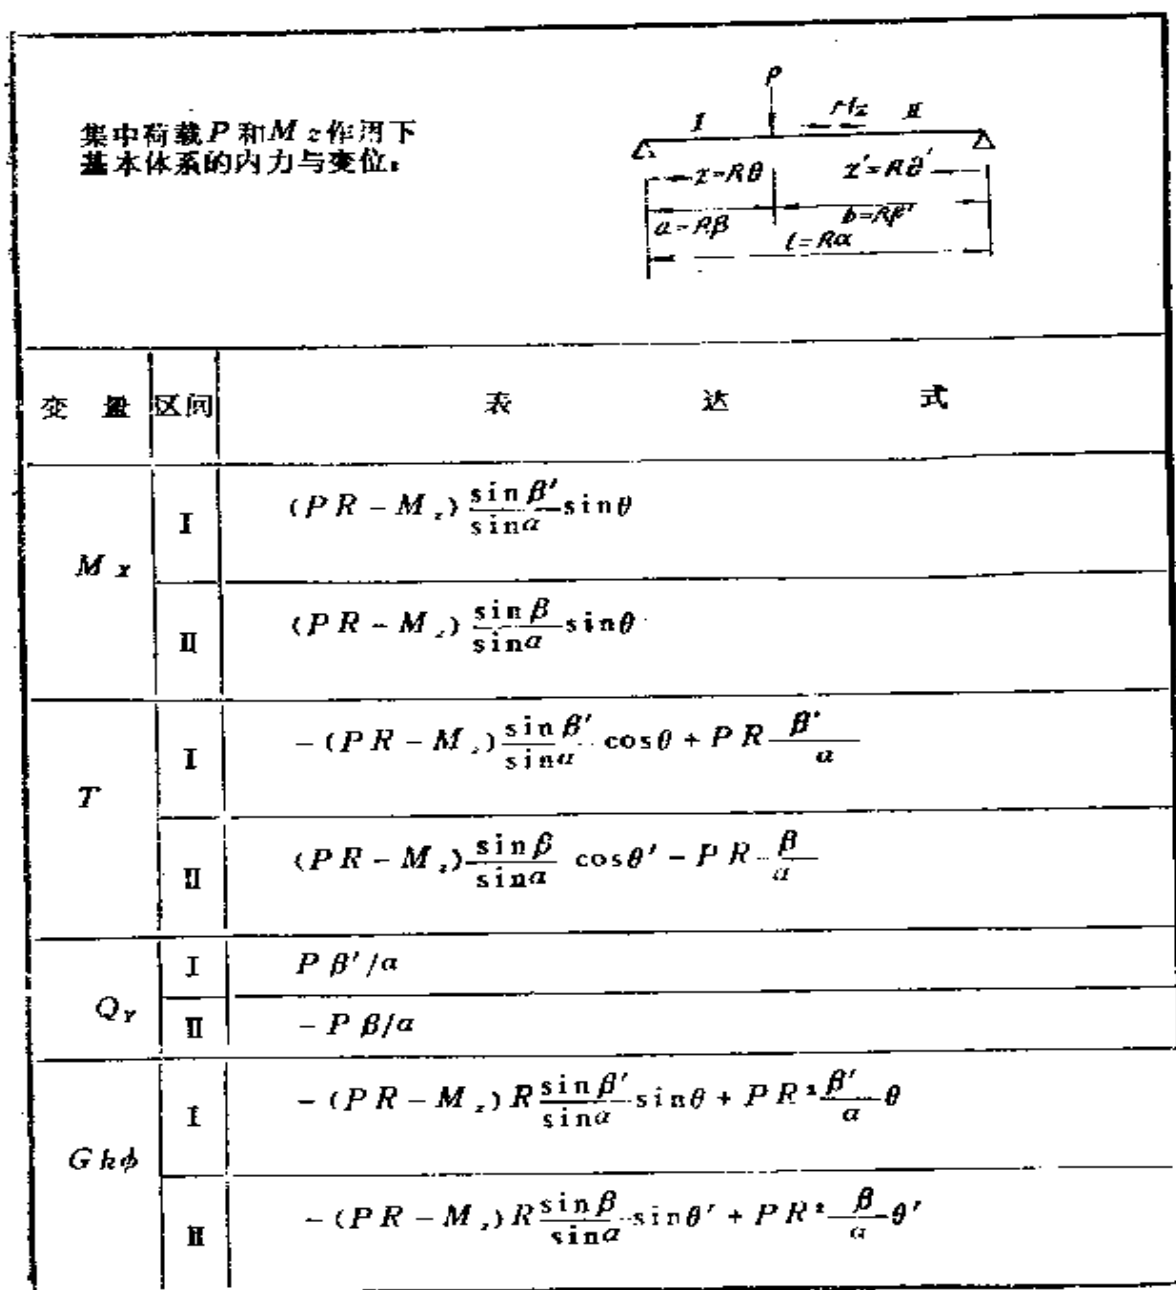 集中荷载P和Mz作用下
基本体系的内力与变位。
P
I Mz II
z=Rθ z'=Rθ'
a=Rβ b=Rβ'
l=Rα
变 量 区间 表 达 式
Mx
I (PR-M_z) sinβ'/sinα sinθ
II (PR-M_z) sinβ/sinα sinθ
T
I -(PR-M_z) sinβ'/sinα cosθ + PR β'/α
II (PR-M_z) sinβ/sinα cosθ' - PR β/α
Q_Y
I Pβ'/α
II -Pβ/α
Gkφ
I -(PR-M_z)R sinβ'/sinα sinθ + PR² β'/α θ
II -(PR-M_z)R sinβ/sinα sinθ' + PR² β/α θ'